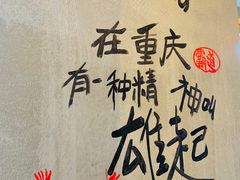 在重庆
霸道
有一种精神叫
雄起